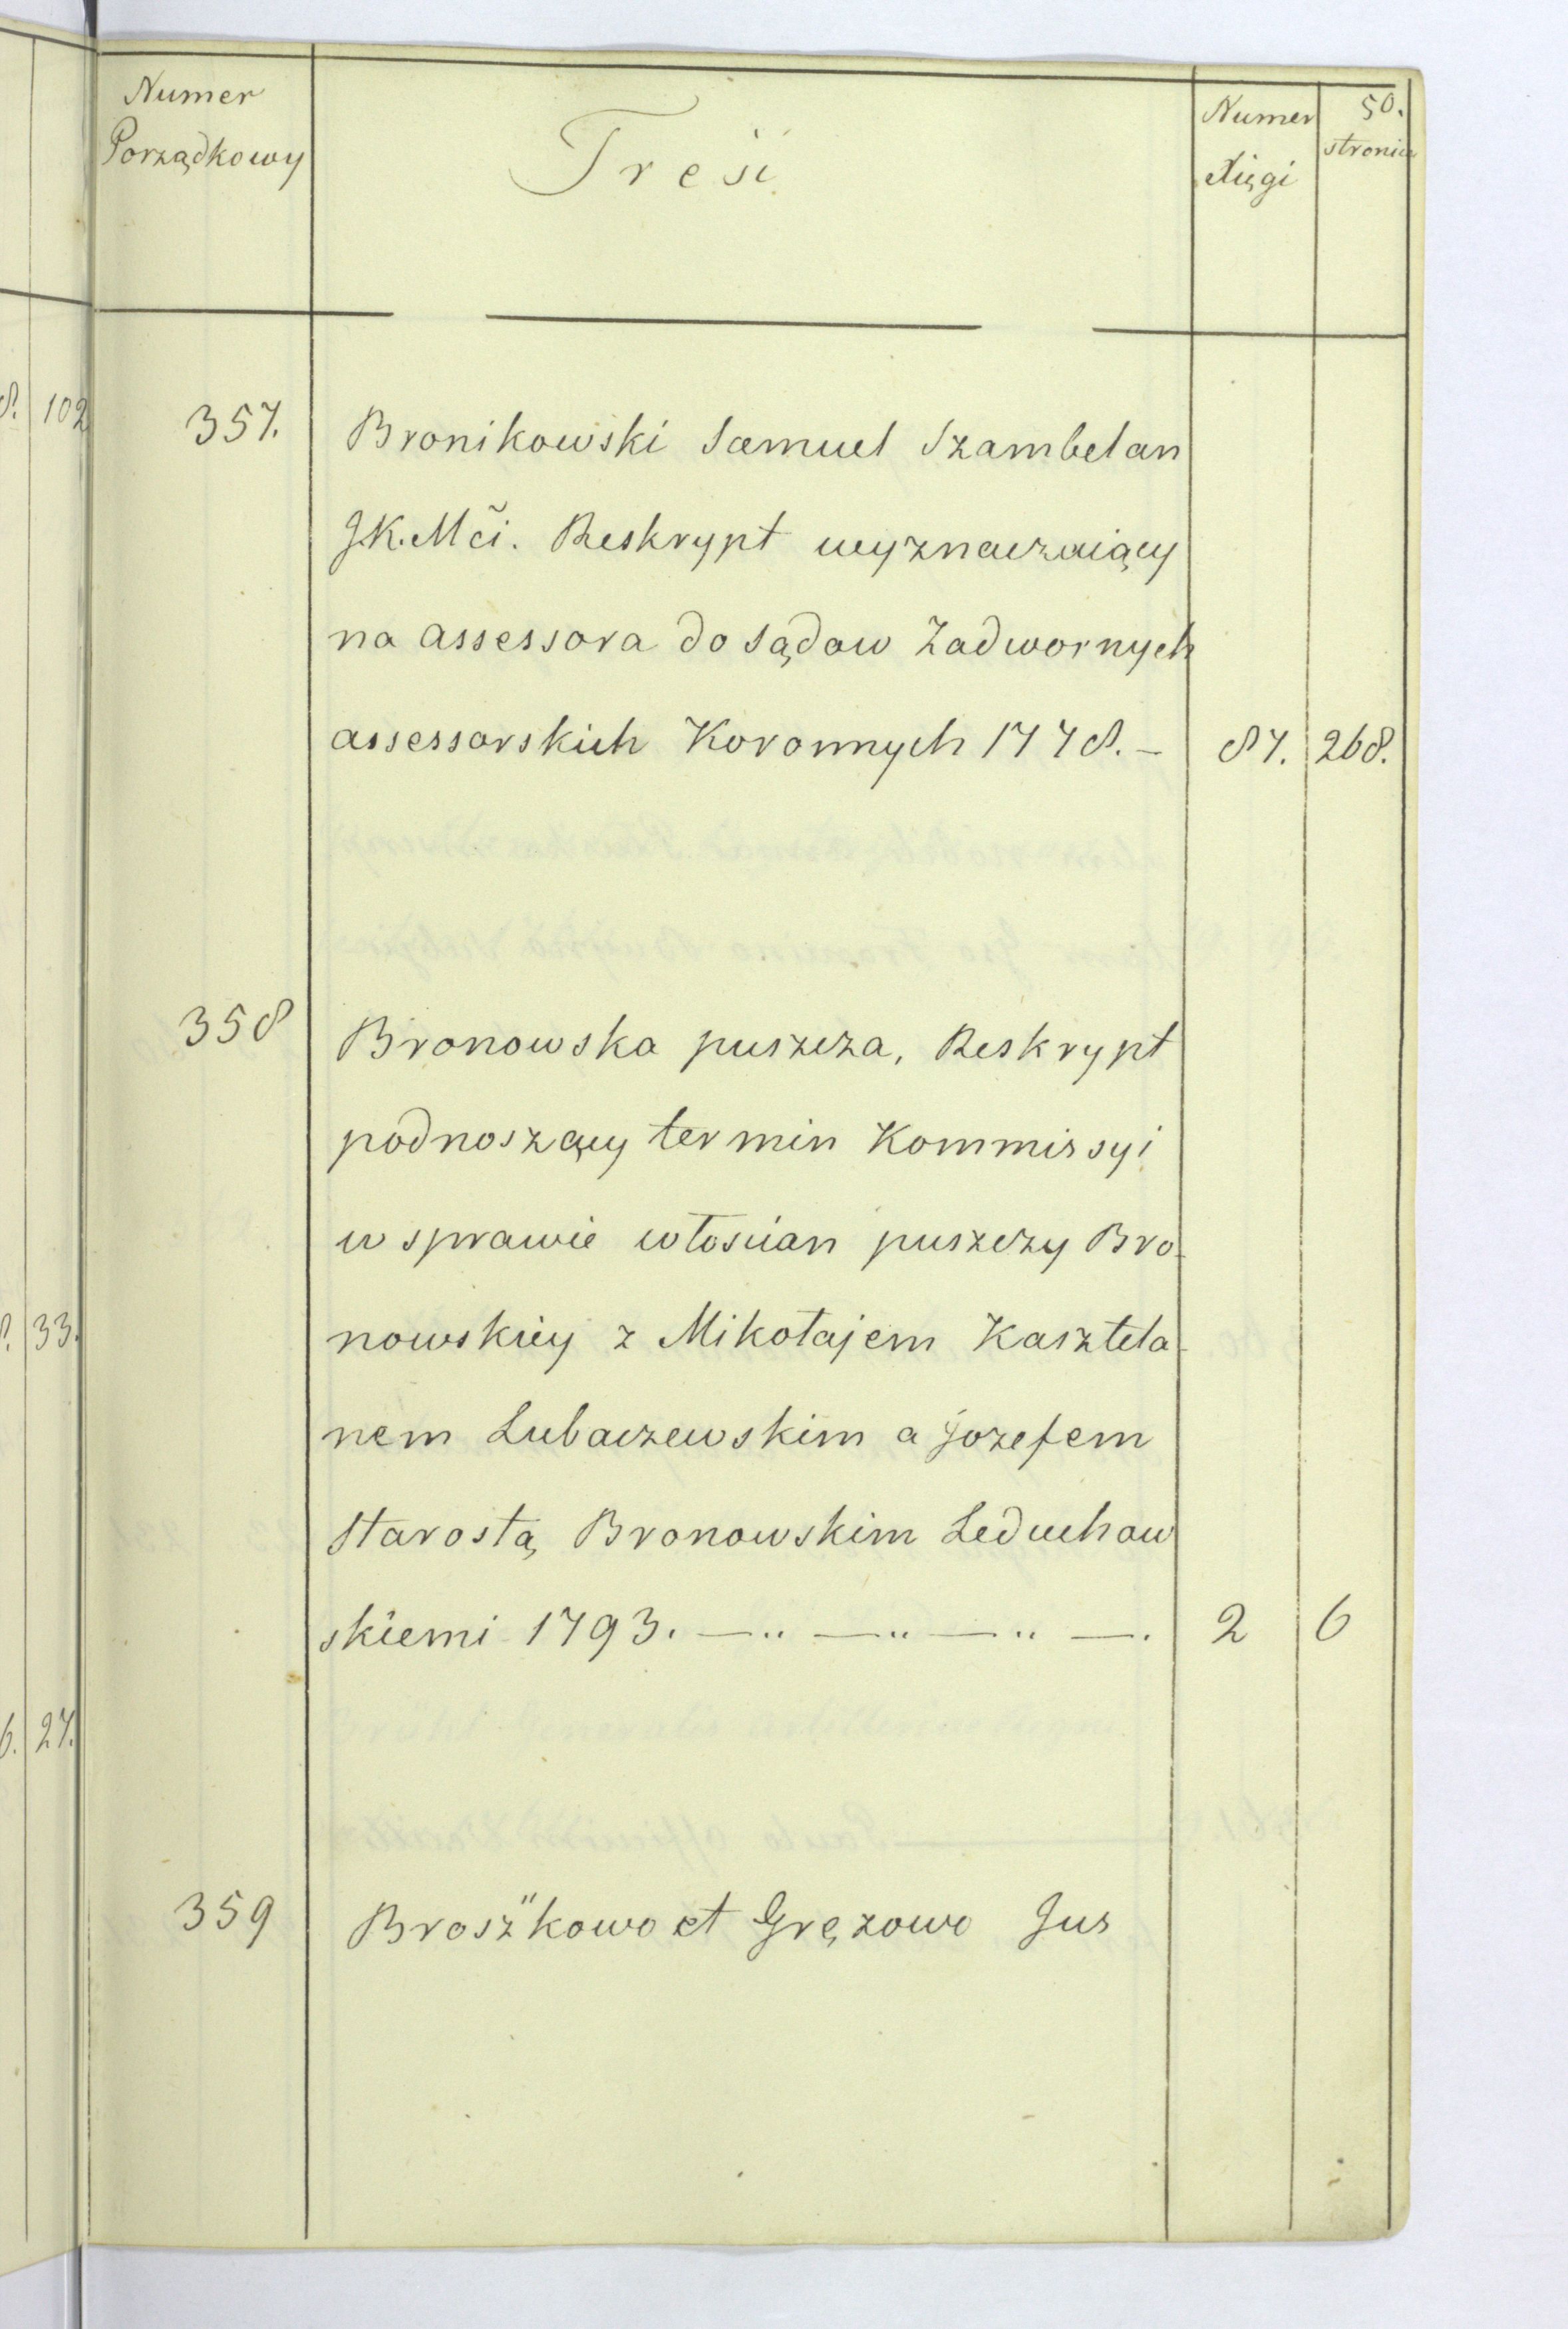 Numer Porządkowy
Treść
Numer Xięgi
50. stronica
8. 102
357. Bronikowski Samuel Szambelan
JK.Mči. Reskrypt wyznaczaiący
na assessora do sądow Zadwornych
assessorskich Koronnych 1778. – 87. 268.
358 Bronowska puszcza, Reskrypt
podnoszący termin Kommissyi
w sprawie włoscian puszczy Bro-
nowskiey z Mikołajem Kasztela-
33.
nem Lubaczewskim a Jozefem
Starostą Bronowskim Leduchow
skiemi 1793. —„ —„ —„ —. 2 6
6. 27.
359 Broszkowo et Gręzowo Jus